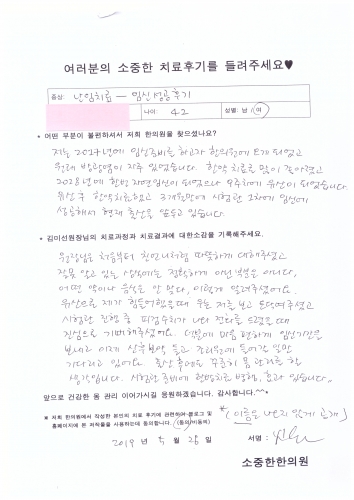 여러분의 소중한 치료후기를 들려주세요♥
증상: 난임치료 – 임신성공후기
나이: 42 성별: 남 / 여
* 어떤 부분이 불편하셔서 저희 한의원을 찾으셨나요?
저는 2017년에 임신준비를 하고자 한의원에 오게 되었고
원래 방광염이 자주 있었습니다. 한약 치료로 많이 좋아졌고
2028년에 한번 자연임신이 되었으나 6주차에 유산이 되었습니다.
유산 후 한약치료받고 3개월만에 시험관 1차에 임신에
성공해서 현재 출산을 앞두고 있습니다.
* 김미선원장님의 치료과정과 치료결과에 대한소감을 기록해주세요.
원장님은 처음부터 친언니처럼 따뜻하게 대해주셨고
잘못 알고 있는 상식에는 정확하게 아닌 부분은 아니다,
어떤 약이나 음식은 안 맞다, 이렇게 알려주셨어요.
유산으로 제가 힘들어했을때 우는 저를 보고 토닥여주셨고
시험관 진행 중 피검수치가 나와 전화를 드렸을때
진심으로 기뻐해주셨어요. 덕분에 마음 편하게 임신기간을
보내고 이제 산후보약 들고 조리원에 들어갈 일만
기다리고 있어요. 출산 후에도 꾸준히 몸 관리를 할
생각입니다. 시험관 준비에 한약치료 병행, 효과 있습니다.
앞으로 건강한 몸 관리 이어가시길 응원하겠습니다. 감사합니다.^^*
* 저희 한의원에서 작성한 본인의 치료 후기에 관련하여 블로그 및
홈페이지에 본 저작물을 사용하는데 동의합니다. (동의/비동의)
* (이름은 나오지 않게 공개)
2019 년 5 월 28 일 서명:
소중한한의원